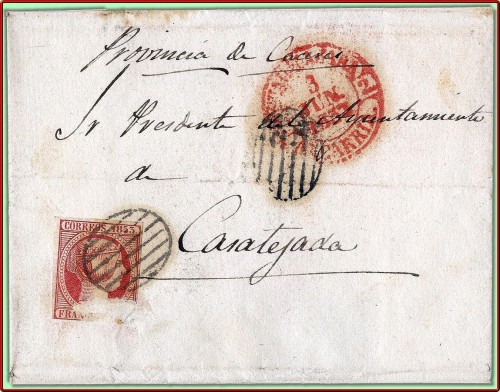 Provincia de Caceres
Sr Presidente del Ayuntamiento
de
Casatejada
3
JUN
CORREOS 1853
FRAN